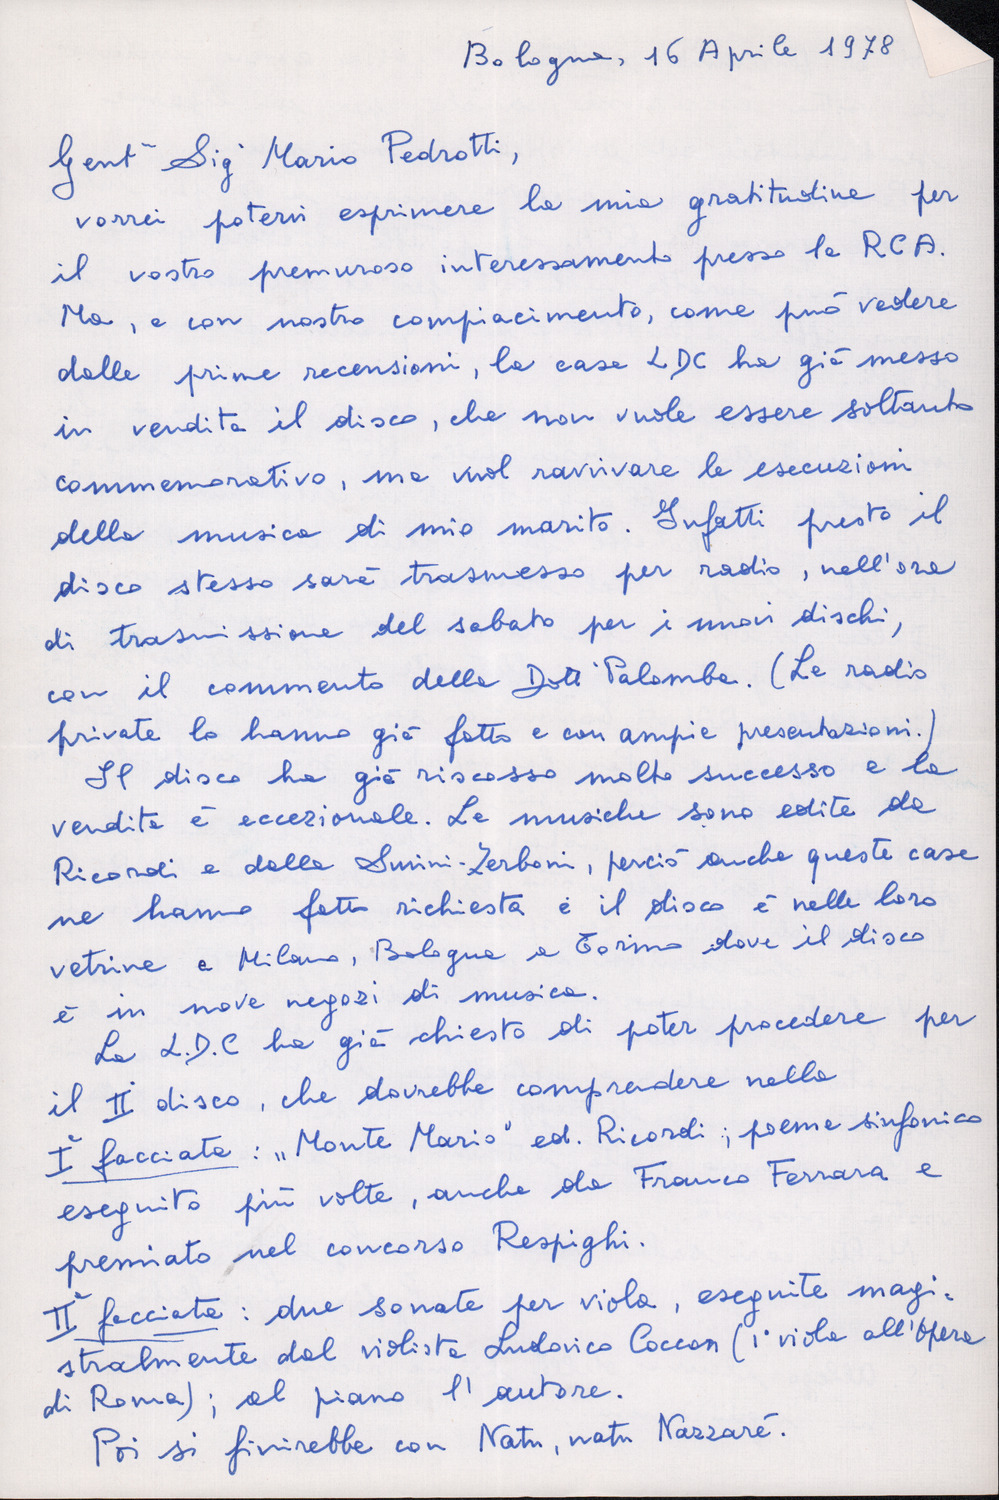 Bologna, 16 Aprile 1978
Gent~ Sig~ Mario Pedrotti,
vorrei potervi esprimere la mia gratitudine per
il vostro premuroso interessamento presso la RCA.
Ma, e con nostro compiacimento, come può vedere
dalle prime recensioni, la casa LDC ha già messo
in vendita il disco, che non vuole essere soltanto
commemorativo, ma vuol ravvivare le esecuzioni
della musica di mio marito. Infatti presto il
disco stesso sarà trasmesso per radio, nell'ora
di trasmissione del sabato per i nuovi dischi,
con il commento della Dott. Palomba. (Le radio
private lo hanno già fatto e con ampie presentazioni.)
Il disco ha già riscosso molto successo e la
vendita è eccezionale. Le musiche sono edite da
Ricordi e dalla Suvini-Zerboni, perciò anche queste case
ne hanno fatto richiesta e il disco è nelle loro
vetrine a Milano, Bologna e Torino dove il disco
è in nove negozi di musica.
La L.D.C ha già chiesto di poter procedere per
il II disco, che dovrebbe comprendere nella
Iª facciata: „Monte Mario" ed. Ricordi; poema sinfonico
eseguito più volte, anche da Franco Ferrara e
premiato nel concorso Respighi.
IIª facciata: due sonate per viola, eseguite magi-
stralmente dal violista Ludovico Coccon (1ª viola all'Opera
di Roma); al piano l'autore.
Poi si finirebbe con Natu, natu Nazzaré.